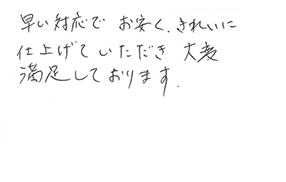 早い対応で お安く、きれいに
仕上げて いただき 大変
満足しております.